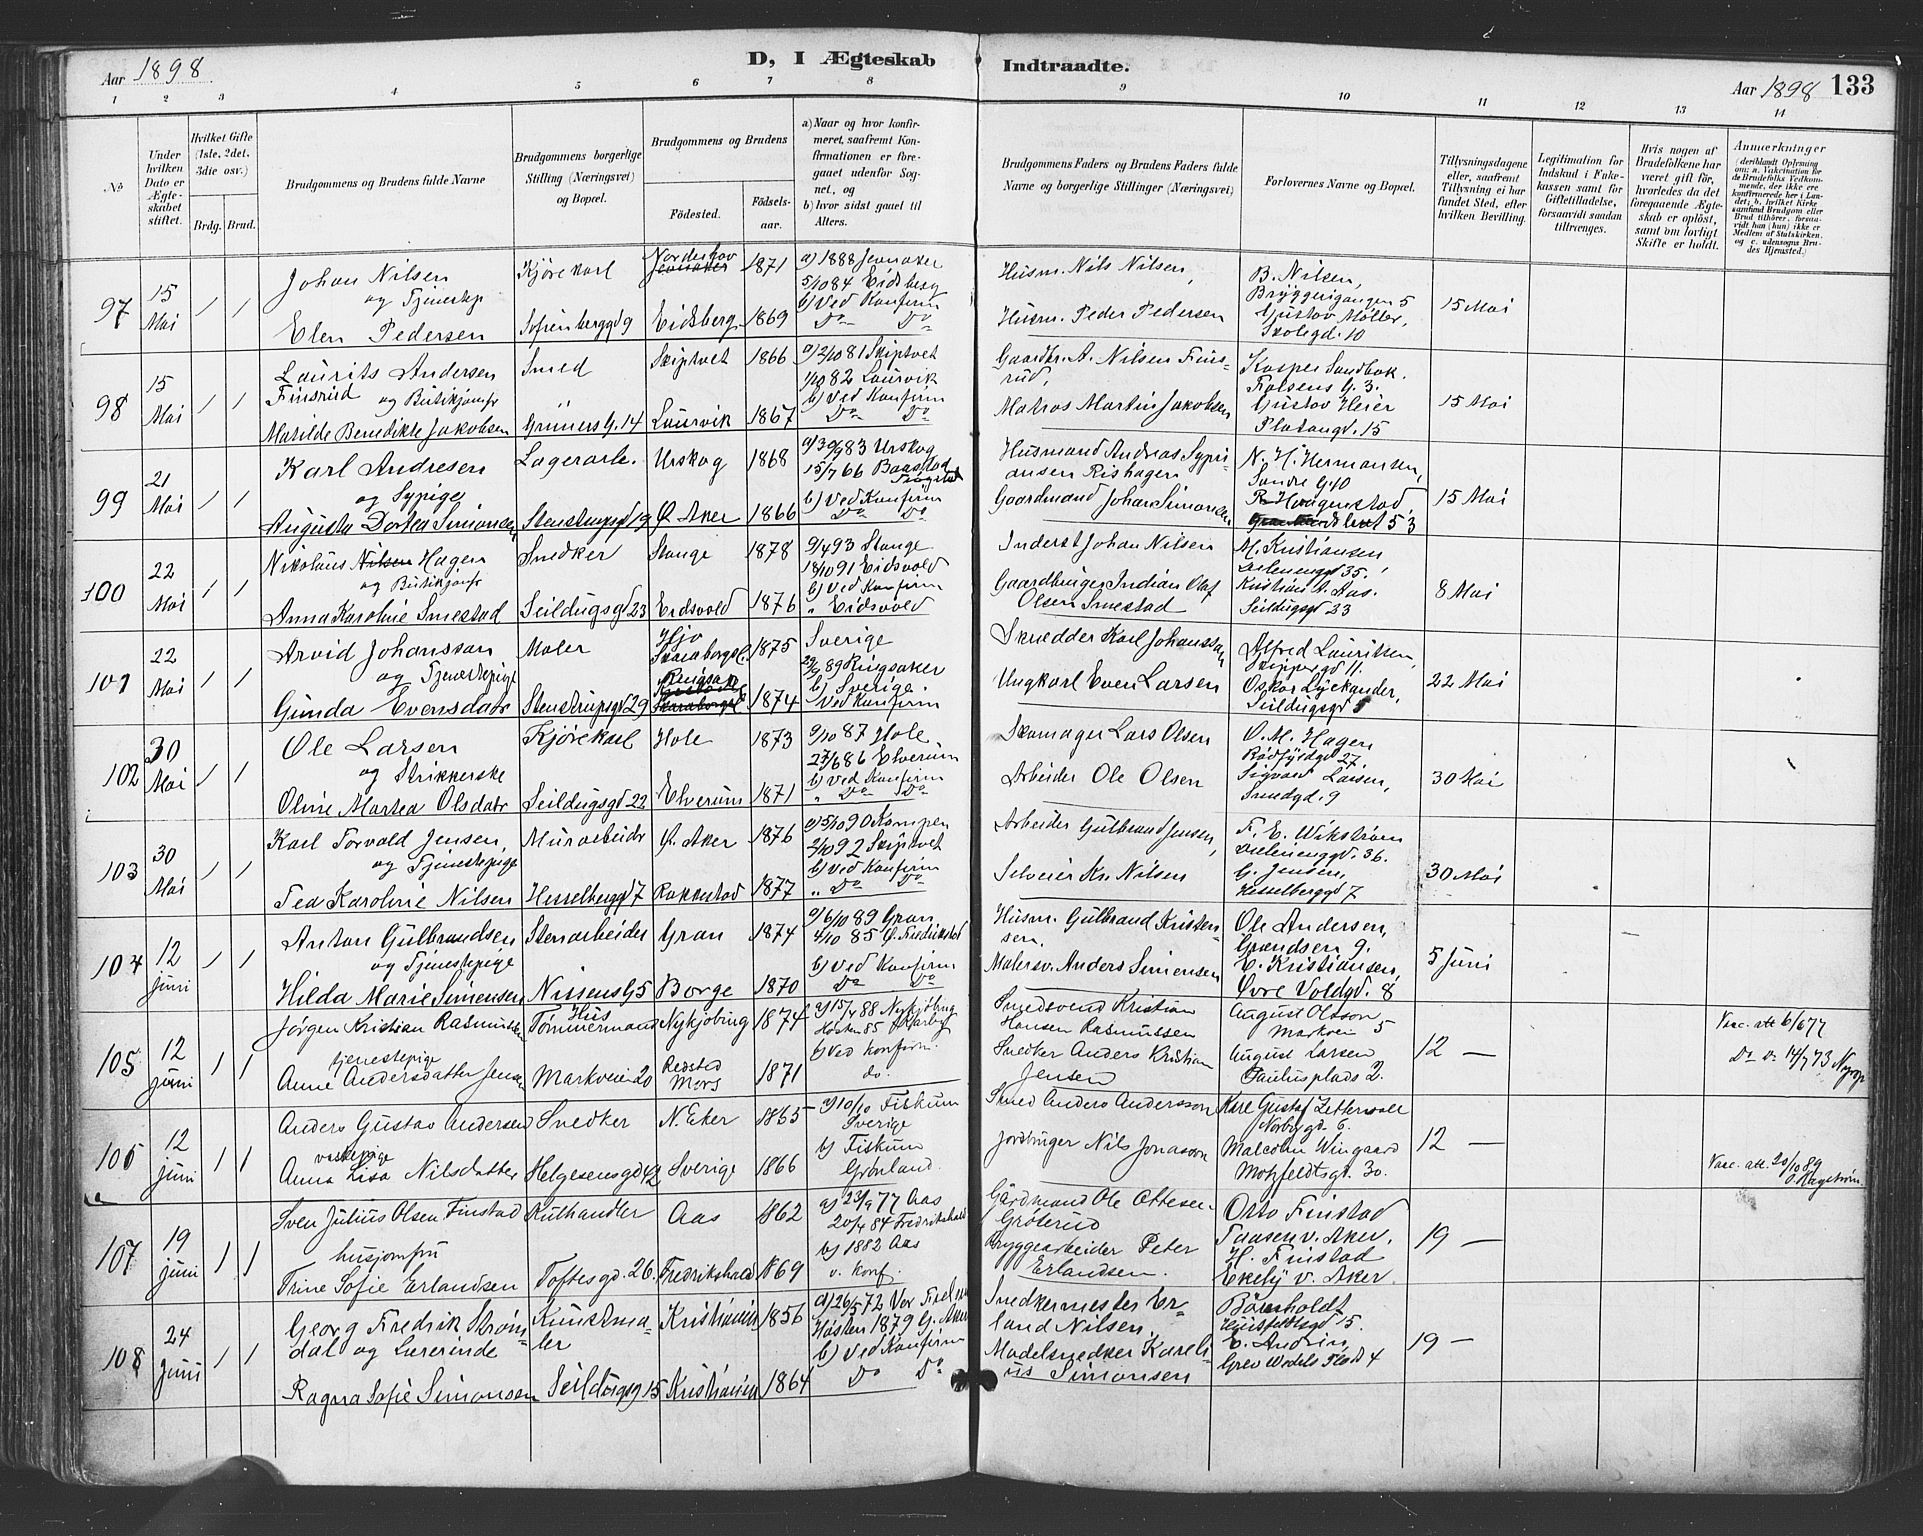 Aar 1898
D, I Ægteskab
Indtraadte.
Aar 1898 133
1 2 3 4 5 6 7 8 9 10 11 12 13 14
No
Under hvilken Dato er Ægteskabet stiftet.
Hvilket Gifte (1ste, 2det, 3die osv.)
Brdg. Brud.
Brudgommens og Brudens fulde Navne
Brudgommens borgerlige Stilling (Næringsvei) og Bopæl.
Brudgommens og Brudens
Fødested.
Fødselsaar.
a) Naar og hvor konfirmeret, saafremt Konfirmationen er foregaaet udenfor Sognet, og
b) hvor sidst gaaet til Alters.
Brudgommens Faders og Brudens Faders fulde Navne og borgerlige Stillinger (Næringsvei)
Forlovernes Navne og Bopæl.
Tillysningsdagene eller, saafremt Tillysning ei har fundet Sted, efter hvilken Bevilling.
Legitimation for Indskud i Fakkassen samt for Giftetilladelse, forsaavidt saadan tiltrænges.
Hvis nogen af Brudefolkene har været gift før, hvorledes da det foregaaende Ægteskab er opløst, samt om lovligt Skifte er holdt.
Anmærkninger
97
15 Mai
1 1
Johan Nilsen
og Tjenestep
Elen Pedersen
Kjørekarl
Sofienberggd 9
Nordrehov
Jevnaker
Eidsberg
1871
1869
a) 1888 Jevnaker
5/10 84 Eidsberg
b) Ved Konfirm
Do Do
Husm. Nils Nilsen,
Husm. Peder Pedersen
B. Nilsen,
Bryggerigangen 5
Gustav Møller,
Skolegd. 10
15 Mai
98
15 Mai
1 1
Laurits Andersen
Finsrud og Butikjomfr
Matilde Benedikte Jakobsen
Smed
Grüners G. 14
Skiptvet
Laurvik
1866
1867
a) 2/10 81 Skiptvet
1/10 82 Laurvik
b) Ved Konfirm
Do Do
Gaardbr. A. Nilsen Fins-
rud,
Matros Martin Jakobsen
Kasper Sandbok.
Falsens G. 3.
Gustav Heier
Platougd. 15
15 Mai
99
21 Mai
1 1
Karl Andresen
og Sypige
Augusta Dortea Simonsen
Lagerarb.
Stenstrupsgd 19
Urskog
Ø. Aker
1868
1866
a) 30/9 83 Urskog
b) Ved Konfirm
Do Do
Husmand Andreas Sypri-
ansen Rishagen
Gaardmand Johan Simonsen
N. H. Hermansen,
Søndre G 10
Haagenstad,
15 Mai
100
22 Mai
1 1
Nikolaus Nilsen Hagen
og Butikjomfr
Anna Karoline Smestad
Snedker
Seildugsgd 23
Stange
Eidsvold
1878
1876
9/4 93 Stange
18/10 91 Eidsvold
b) Ved Konfirm
" Eidsvold
Inderst Johan Nilsen
Gaardbruger Indian Olaf
Olsen Smestad
M. Kristiansen
Delenenggd 35.
Kristian A. Aas.
Seildugsgd 23
8 Mai
101
22 Mai
1 1
Arvid Johansson
og Tjenestepige
Gunda Evensdatr
Maler
Stenstrupsgd 29
Hjo
Skaraborgsl.
Ringsak
1875
1874
Sverige
29/9 89 Ringsaker
b) Sverige.
Ved Konfirm
Skrædder Karl Johansson
Ungkarl Even Larsen
Alfred Lauritsen,
Skippergd 11.
Oskar Lyckander,
Seildugsgd 5
22 Mai
102
30 Mai
1 1
Ole Larsen
og Strikkerske
Oline Martea Olsdatr
Kjørekarl
Seildugsgd 22
Hole
Elverum
1873
1871
9/10 87 Hole.
27/6 86 Elverum
b) ved Konfirm
" Do Do
Skomager Lars Olsen
Arbeider Ole Olsen
O. M. Hagen
Rødfyldgd 27.
Sigvard Larsen,
Smedgd. 9
30 Mai
103
30 Mai
1 1
Karl Torvald Jensen,
og Tjenestepige
Tea Karoline Nilsen
Murarbeidr
Hesselberggd 7
Ø. Aker
Rakkestad
1876
1877
a) 5/10 90 Kampen
2/10 92 Skiptvet
b) Ved Konfirm
" Do Do
Arbeider Gulbrand Jensen,
Selveier Kr. Nilsen
F. E. Wikstrøm
Delenenggd. 36.
G. Jensen,
Hesselberggd 7
30 Mai
104
12 Juni
1 1
Anton Gulbrandsen
og Tjenestepige
Hilda Marie Simensen
Stenarbeider
Nissens G 5
Gran
Borge
1874
1870
a) 6/10 89 Gran
4/10 85 G. Fredrikstad
b) Ved Konfirm
Do Do
Husm. Gulbrand Kristen-
sen.
Malersv. Anders Simensen
Ole Andersen,
Grændsen 9.
E. Kristiansen,
Øvre Voldgd. 8
5 Juni
105
12 Juni
1 1
Jørgen Kristian Rasmussen
tjenestepige
Anne Andersdatter Jensen
Hus
Tømmermand
Markveien 20
Nykjøbing
Redsted
Mors
1874
1871
a) 15/4 88 Nykjøbing
Høsten 85 Karby
b) Ved konfirm.
do.
Smedsvend Kristian
Hansen Rasmussen
Snedker Anders Kristian
Jensen
August Olsson
Markvei 5
August Larsen
Paulusplads 2.
12 —
Vac. att 6/6 77
Do v. 14/7 73 Nyrop
106
12 Juni
1 1
Anders Gustav Andersen
vaskepige
Anna Lisa Nilsdatter
Snedker
Helgesensgd 42
N. Eker
Sverige
1865
1866
a) 10/10 Fiskum
Sverige
b) Fiskum
Grønland.
Smed Anders Andersson
Jordbruger Nils Jonasson
Karl Gustaf Zetterwall
Norbygd 6.
Malcolm Wingaard
Motzfeldtsgt. 30.
12 —
Vac. att. 20/10 89
107
19 Juni
1 1
Sven Julius Olsen Finstad
husjomfru
Trine Sofie Erlandsen
Kulhandler
Toftesgd. 26.
Aas
Fredrikshald
1862
1869
a) 23/9 77 Aas
20/4 84 Fredrikshald
b) 1882 Aas
v. konf.
Gårdmand Ole Ottesen
Grøterud
Bryggearbeider Peter
Erlandsen.
Otto Finstad
Taasen v. Aker.
H. Finstad
Ekely v. Aker.
19 —
108
24 Juni
1 1
Georg Fredrik Strøm-
dal og Lærerinde
Ragna Sofie Simonsen
Kunstma-
ler
Seildugsg 15
Kristiania
Kristiania
1856
1864
a) 26/5 72 Vor Frelser
Høsten 1879 G. Aker
b) Ved Konfirm
Do Do
Snedkermester Er-
land Nilsen,
Modelsnedker Kareli-
us Simonsen
Børnholdt
Huitfeldtsgd 15.
E. Andrin,
Grev Wedels Plads 4
19 —